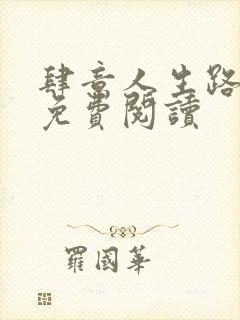 肆意人生路
免費閱讀
羅國華